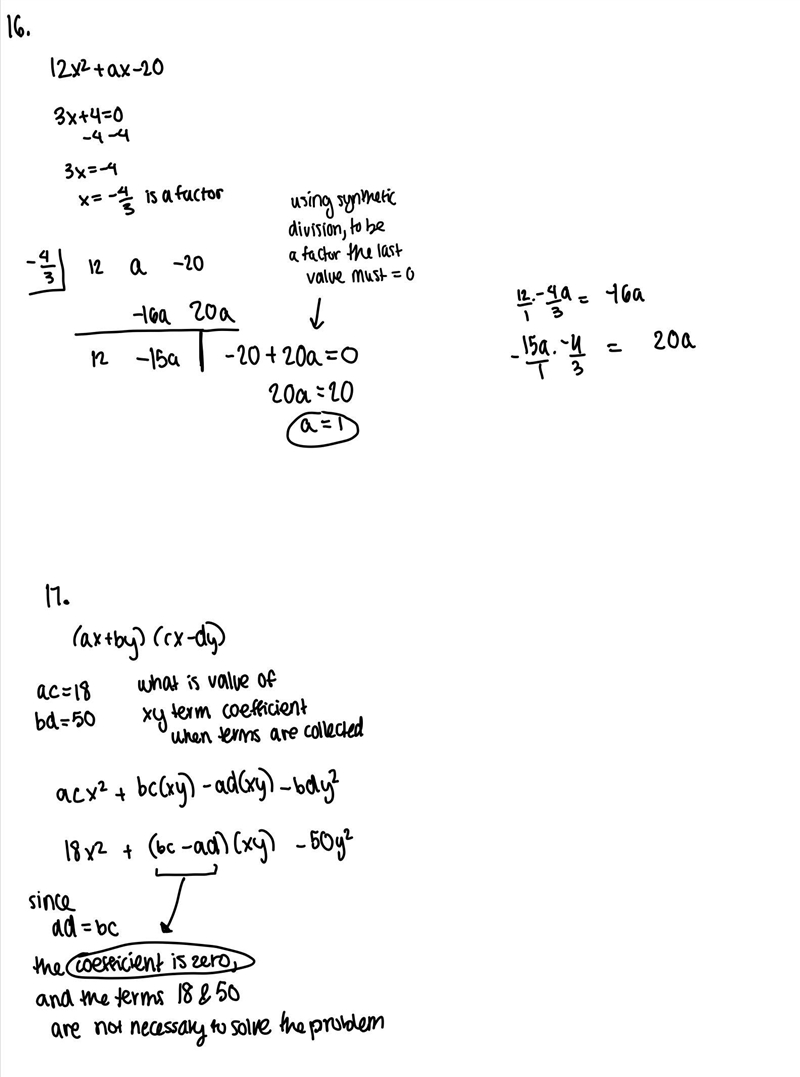 16.
12x² + ax - 20
3x + 4 = 0
-4 -4
3x = -4
x = -4/3 is a factor
using synthetic
division, to be
a factor the last
value must = 0
-4/3 | 12 a -20
-16a 20a
12 -15a | -20 + 20a = 0
20a = 20
a = 1
12/1 · -4a/3 = -16a
-15a/1 · -4/3 = 20a
17.
(ax+by) (cx-dy)
ac = 18 what is value of
bd = 50 xy term coefficient
when terms are collected
acx² + bc(xy) - ad(xy) - bdy²
18x² + (bc - ad) (xy) - 50y²
since
ad = bc
the coefficient is zero,
and the terms 18 & 50
are not necessary to solve the problem